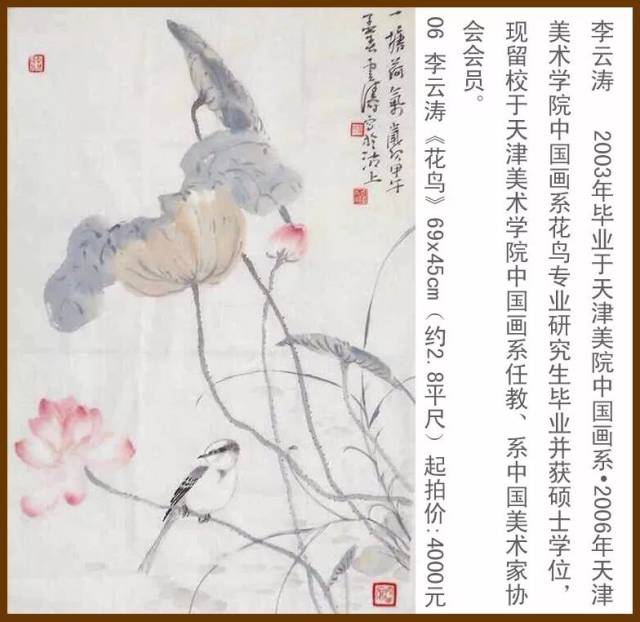 李云涛 2003年毕业于天津美院中国画系•2006年天津
美术学院中国画系花鸟专业研究生毕业并获硕士学位，
现留校于天津美术学院中国画系任教、系中国美术家协
会会员。
06 李云涛《花鸟》69x45cm（约2.8平尺）起拍价:4000元
一塘荷氣歲次甲午
孟春雲濤写於沽上